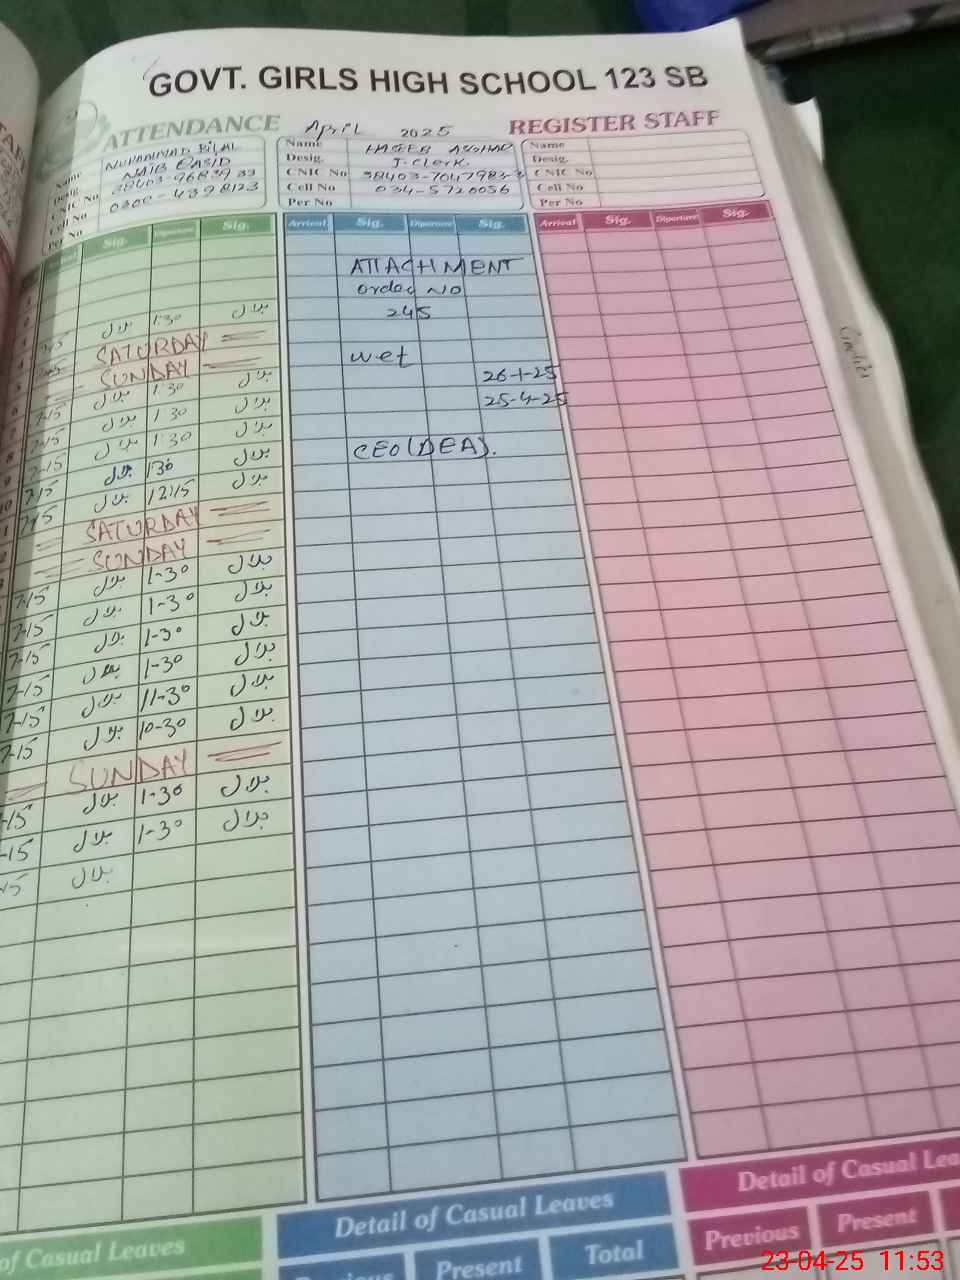 GOVT. GIRLS HIGH SCHOOL 123 SB
ATTENDANCE April 2025 REGISTER STAFF
Name MUHAMMAD BILAL
Desig. NAIB QASID
CNIC No
Cell No 0300-4398123
Per No
Name HASEEB ASGHAR
Desig. J-Clerk.
CNIC No 38403-7047983-3
Cell No 034-5720056
Per No
Name
Desig.
CNIC No
Cell No
Per No
Sig. Diparture Sig.
Arrival Sig. Diparture Sig.
Arrival Sig. Diparture Sig.
ATTACHMENT
order NO
245
wef
26-1-25
25-4-25
CEO (DEA).
7-15 بلال 1:30 بلال
SATURDAY
SUNDAY
7-15 بلال 1:30 بلال
7-15 بلال 1:30 بلال
7-15 بلال 1:30 بلال
7-15 بلال 1:30 بلال
7-15 بلال 12:15 بلال
SATURDAY
SUNDAY
7-15 بلال 1-30 بلال
7-15 بلال 1-30 بلال
7-15 بلال 1-30 بلال
7-15 بلال 1-30 بلال
7-15 بلال 11-30 بلال
7-15 بلال 10-30 بلال
SUNDAY
-15 بلال 1-30 بلال
-15 بلال 1-30 بلال
-15 بلال
of Casual Leaves
Detail of Casual Leaves
Present Total
Detail of Casual Lea
Previous Present
23-04-25 11:53